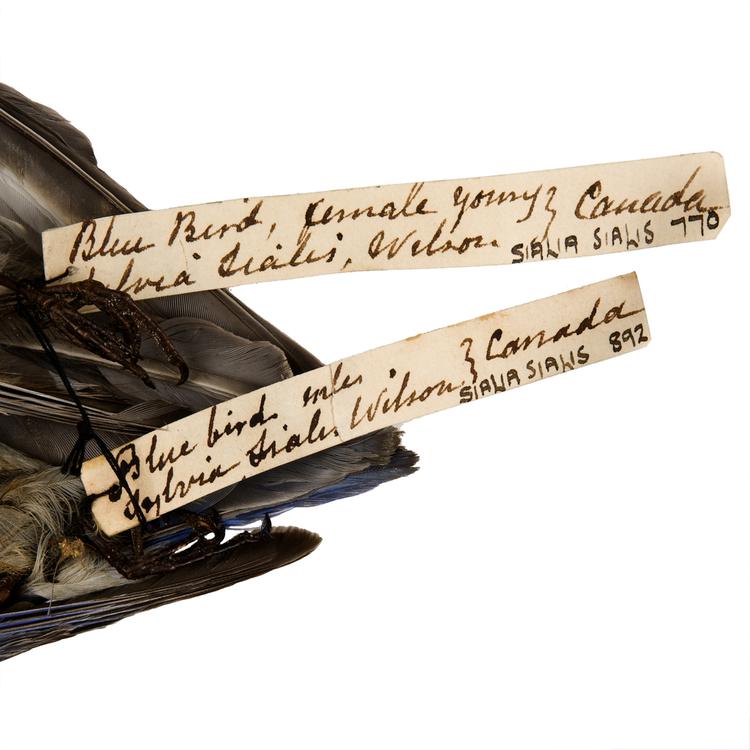 Blue Bird, female young } Canada
Sylvia Sialis, Wilson
SIALIA SIALIS 770
Blue bird male } Canada
Sylvia Sialis Wilson
SIALIA SIALIS 892